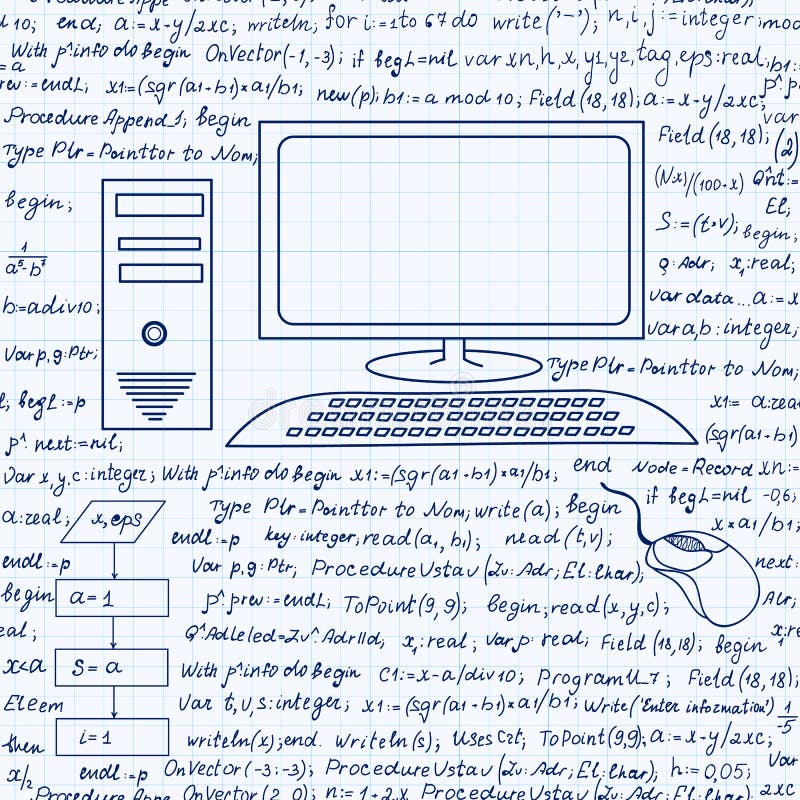 10; end, a:=x-y/2xc; writeln; for i:=1 to 67 do write('-'); n,i,j:=integer;mod
With p^info do begin OnVector(-1,-3); if begL=nil var xn,h,x,y1,y2,tag,eps:real;b1:=
=a
prev:=endL; x1:=(sgr(a1-b1)×a1/b1; new(p);b1:=a mod 10; Field(18,18);a:=x-y/2xc;
Procedure Append_1; begin
var
Field(18,18);
(2)
Type Plr=Pointtor to Nom;
(N·x)/(100+x)
begin;
El;
S:=(t·v); begin;
1
a⁵-b⁷
g:Adr; x1:real;
b:=adiv10;
var data...a:=x
var a,b:integer;
Var p,g:Ptr;
Type Plr=Pointtor to Nom;
begL:=p
x1:= a:real
p^.next:=nil;
(sgr(a1-b1)
Var x,y,c:integer; With p^.info do begin x1:=(sgr(a1-b1)×a1/b1; end Node=Record xn:=
if begL=nil -0,6;
a:real;
x,eps
Type Plr=Pointtor to Nom; write(a); begin
x×a1/b1;
endl:=p key:integer;read(a1,b1); read(t,v);
endl:=p
Var p,g:Ptr; Procedure Ustav(Zv:Adr;El:Char);
next:
begin
a=1
p^.prev:=endL; ToPoint(9,9); begin;read(x,y,c);
Alr;
eal;
Q^.Adleled=Zv^.Adrlld; x1:real; var p:real; Field(18,18); begin
x<a
S=a
With p^.info do begin C1:=x-a/div10; ProgramU_7; Field(18,18);
Eleem
Var t,v,s:integer; x1:=(sgr(a1-b1)×a1/b1; Write('Enter information')
1
-5
then
i=1
writeln(x);end. Writeln(s); Uses Crt; ToPoint(9,9);a:=x-y/2xc;
x/2
endl:=p OnVector(-3;-3); Procedure Ustav(Zv:Adr;El:Char); h:=0,05; Var
Procedure Appe OnVector(2,0); n:=1+2×
2xc